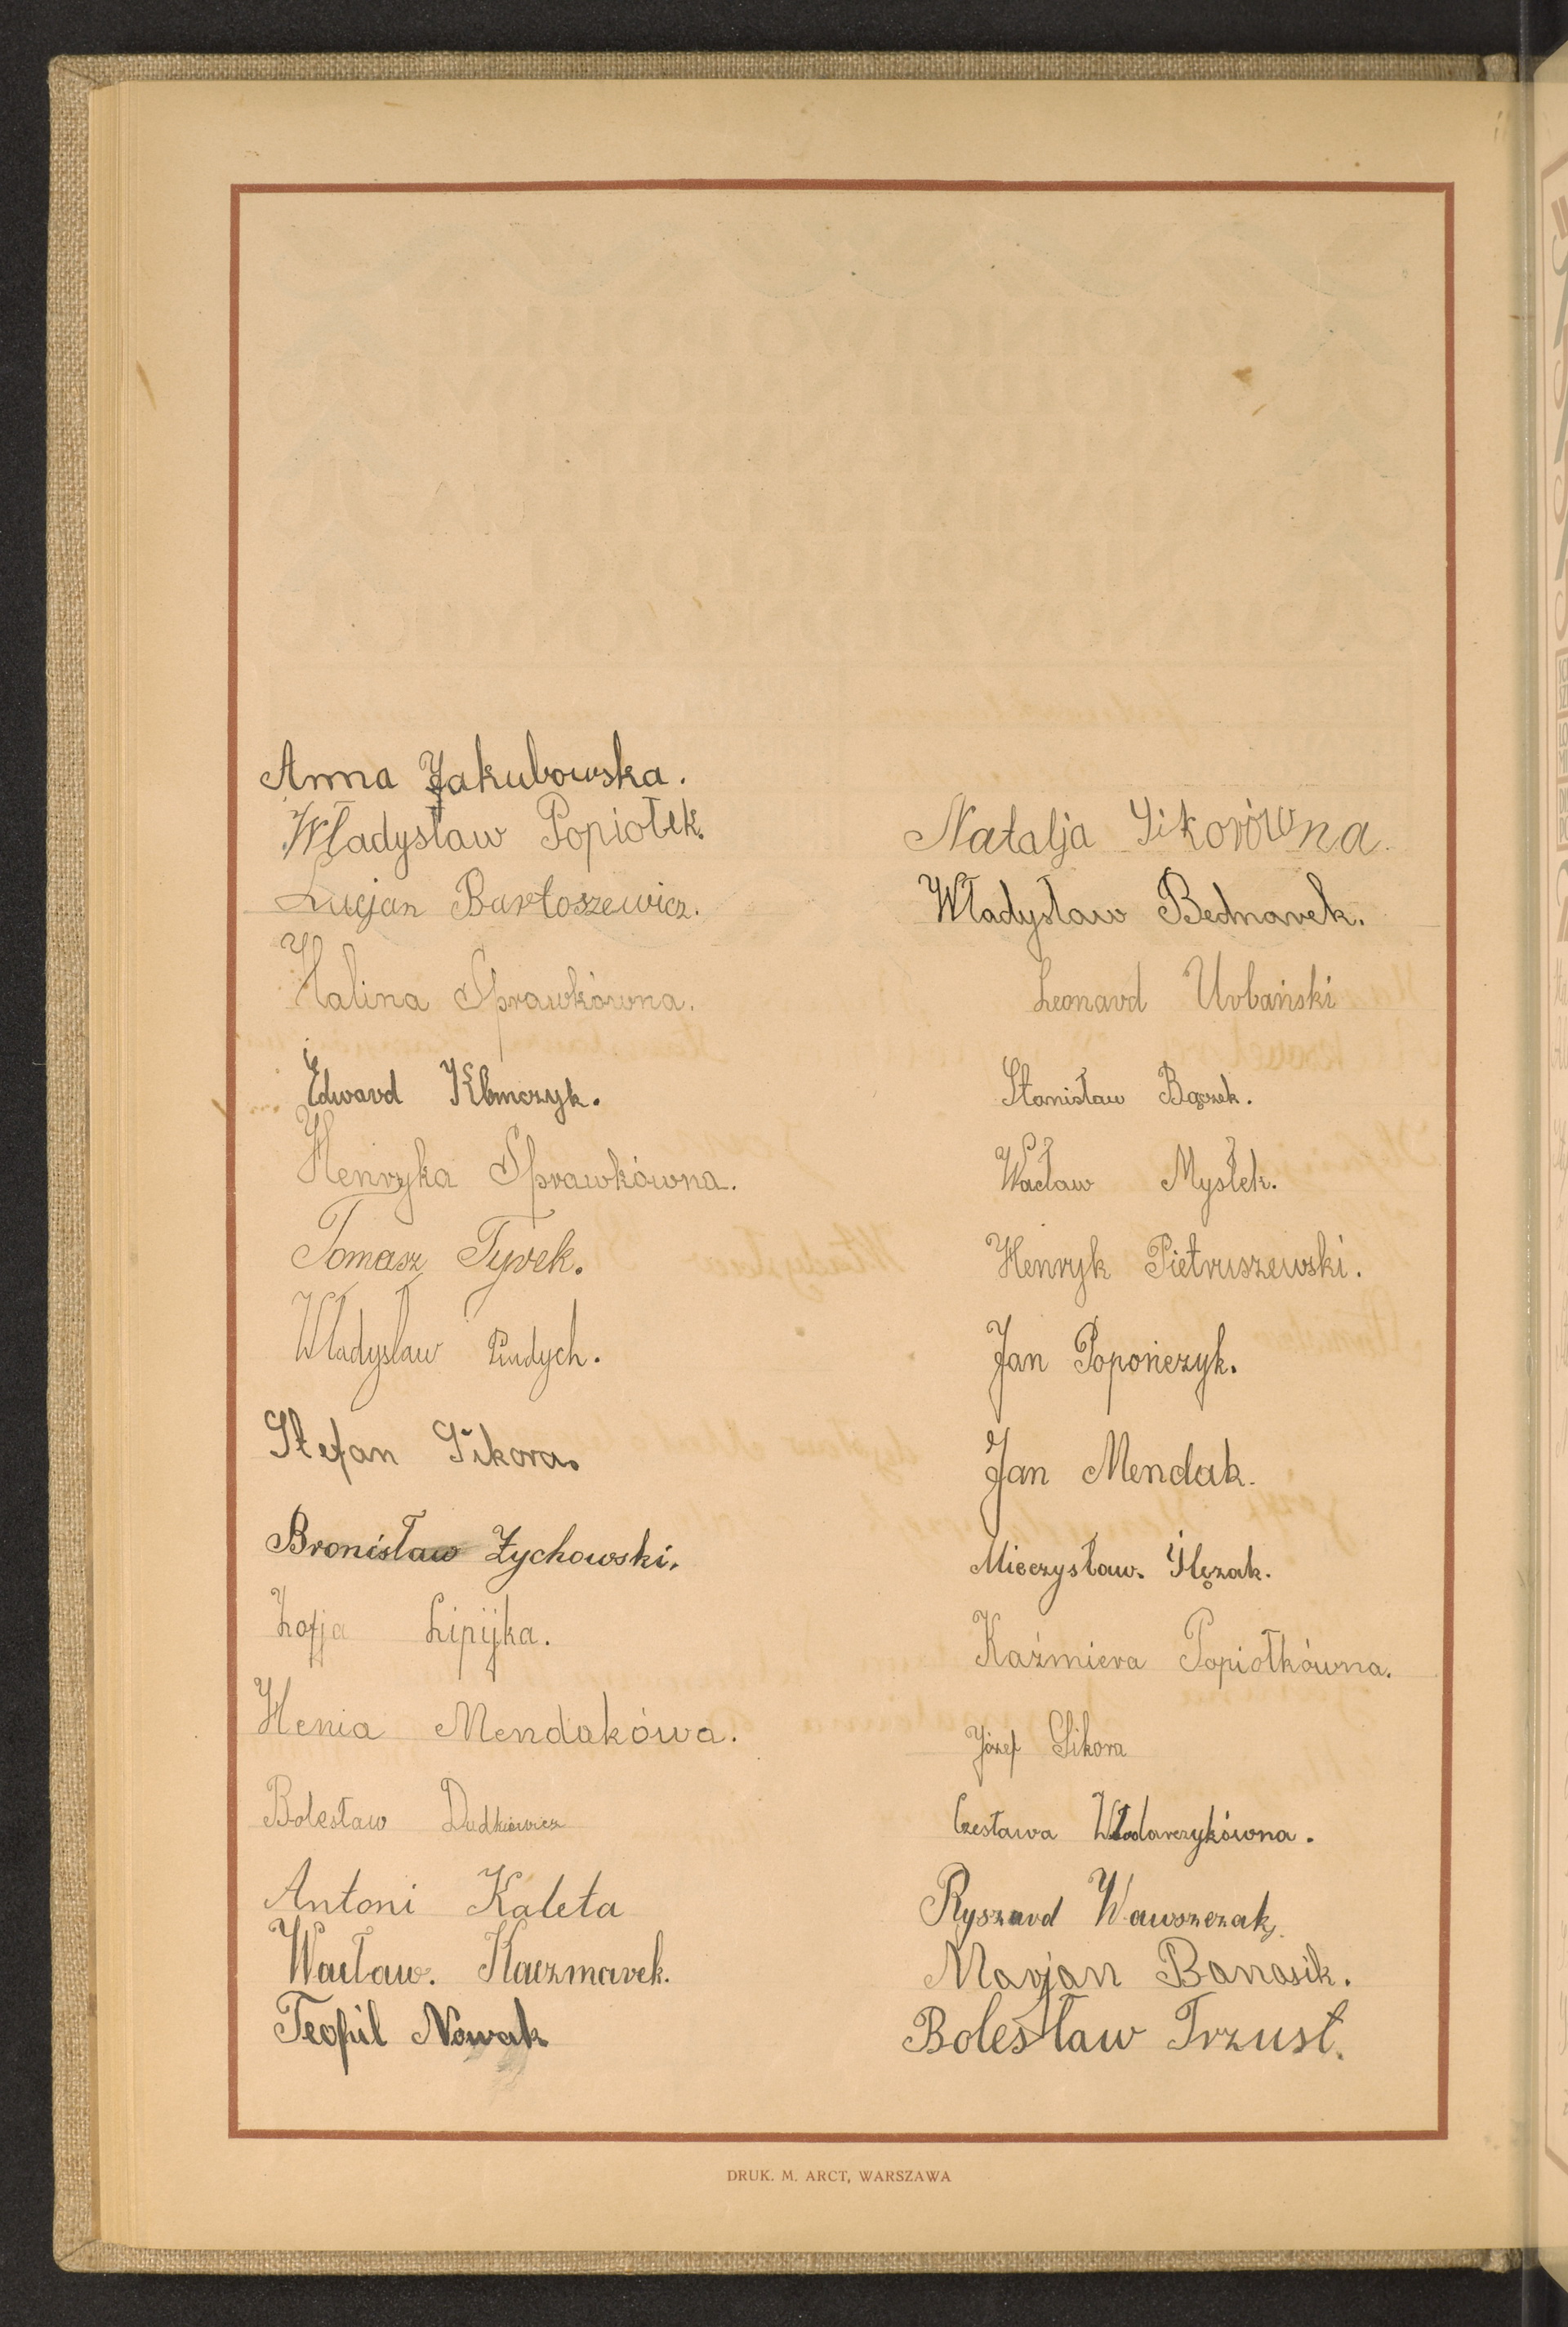 Anna Jakubowska.
Władysław Popiołek.
Lucjan Bartoszewicz.
Halina Sprawkówna.
Edward Klimczyk.
Henryka Sprawkówna.
Tomasz Tyrek.
Władysław Pindych.
Stefan Sikora.
Bronisław Zychowski.
Zofja Lipijka.
Henia Mendakówa.
Bolesław Dudkiewicz
Antoni Kaleta
Wacław. Kaczmarek.
Teofil Nowak
Natalja Sikorówna.
Władysław Bednarek.
Leonard Urbański
Stanisław Bączek.
Wacław Mysłek.
Henryk Pietruszewski.
Jan Popończyk.
Jan Mendak.
Mieczysław. Ślęzak.
Kaźmiera Popiołkówna.
Józef Sikora
Czesława Włodarczykówna.
Ryszard Wawszczak.
Marjan Banasik.
Bolesław Trzust.
DRUK. M. ARCT, WARSZAWA